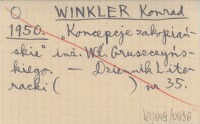 O WINKLER Konrad
1950. „Koncepcje zakopiań-
skie" inż. Wł. Gruszczyńs-
kiego. — Dziennik Lite-
racki ( ) nr 35.